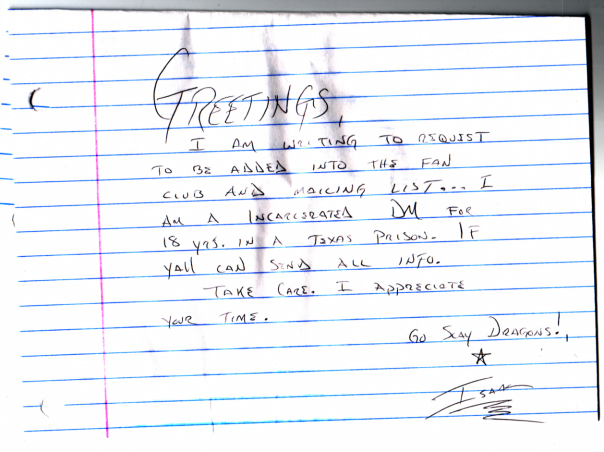 GREETINGS,
I AM WRITING TO REQUIST
TO BE ADDED INTO THE FAN
CLUB AND MAILING LIST... I
AM A INCARCERATED DM FOR
18 YRS. IN A TEXAS PRISON. IF
YALL CAN SEND ALL INFO.
TAKE CARE. I APPRECIATE
YOUR TIME.
GO SLAY DRAGONS!,